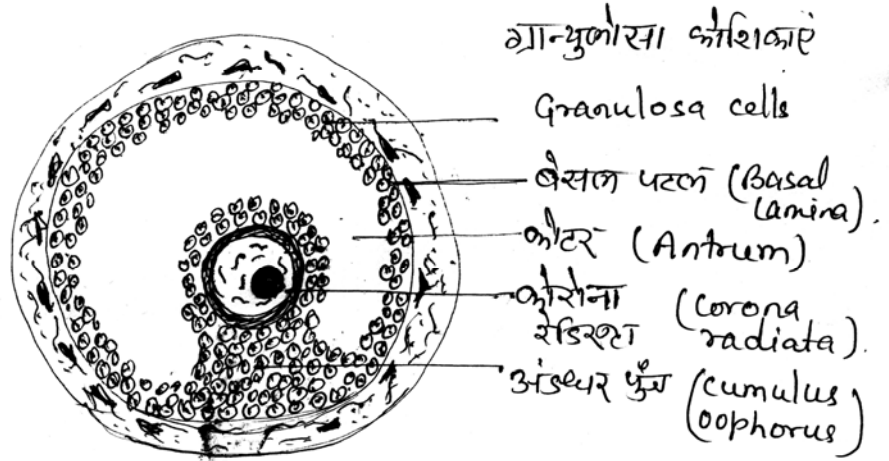 ग्रान्युलोसा कोशिकाएं
Granulosa cells
बेसल पटल (Basal
Lamina).
कोटर (Antrum)
कोरोना (Corona
रेडिएटा radiata).
अंडधर पुंज (cumulus
oophorus)